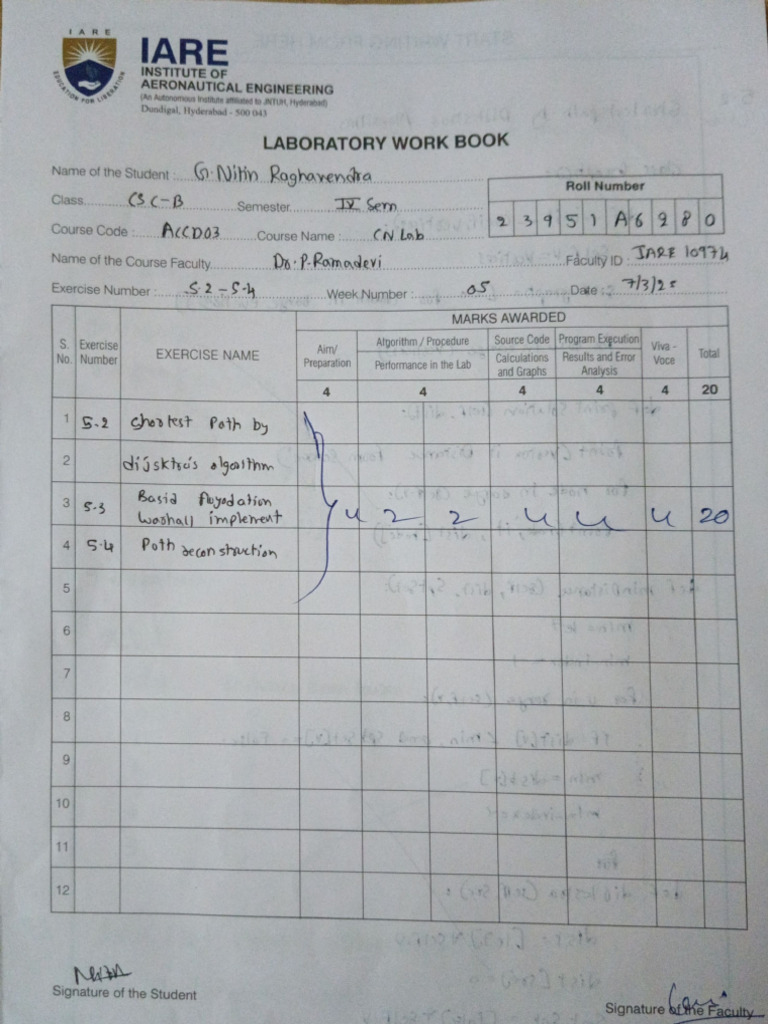 IARE
EDUCATION FOR LIBERATION
IARE
INSTITUTE OF
AERONAUTICAL ENGINEERING
(An Autonomous Institute affiliated to JNTUH, Hyderabad)
Dundigal, Hyderabad - 500 043
LABORATORY WORK BOOK
Name of the Student : G. Nitin Raghavendra
Roll Number
Class CSC-B Semester IV Sem
2 3 9 5 1 A 6 2 8 0
Course Code : ACCD03 Course Name : CN Lab
Name of the Course Faculty Dr. P. Ramadevi Faculty ID : IARE 10974
Exercise Number : 5.2 - 5.4 Week Number : 05 Date : 7/3/25
S. No. Exercise Number EXERCISE NAME MARKS AWARDED
Aim/ Preparation Algorithm / Procedure Performance in the Lab Source Code Calculations and Graphs Program Execution Results and Error Analysis Viva - Voce Total
4 4 4 4 4 20
1 5.2 shortest Path by
2 dijsktra's algorithm
3 5.3 floydation
warshall implement 4 2 2 4 4 4 20
4 5.4 Path reconstruction
5
6
7
8
9
10
11
12
Signature of the Student
Signature of the Faculty